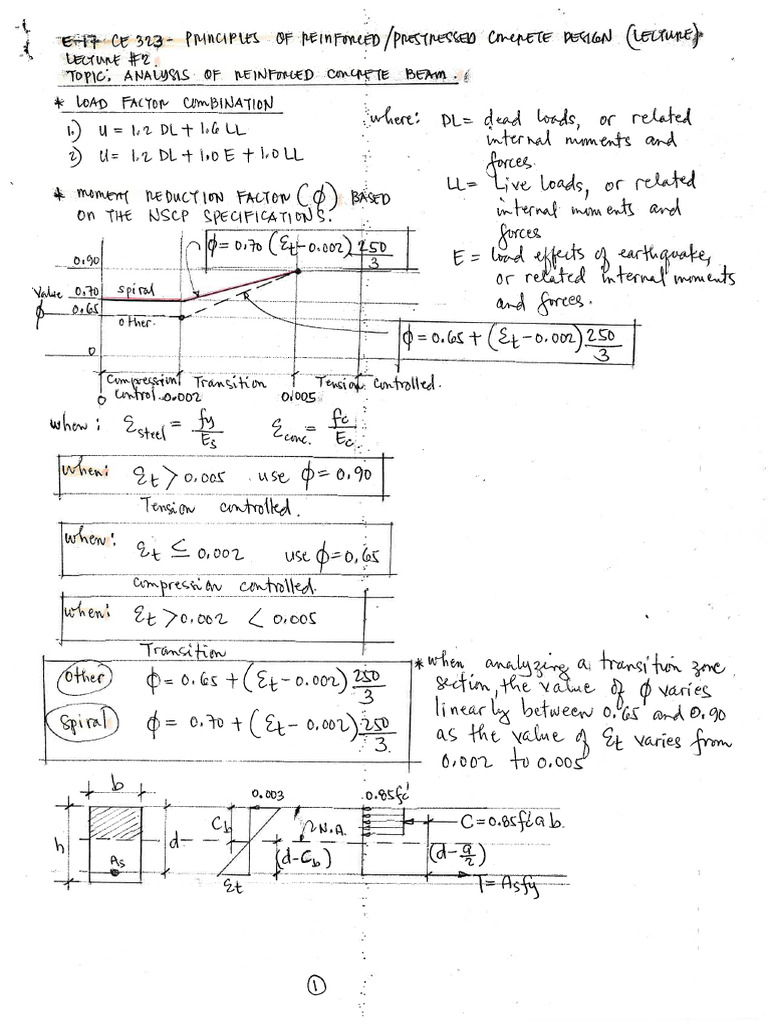 E-17 CE 323 - PRINCIPLES OF REINFORCED/PRESTRESSED CONCRETE DESIGN (LECTURE)
LECTURE #2.
TOPIC: ANALYSIS OF REINFORCED CONCRETE BEAM.
* LOAD FACTOR COMBINATION
1.) U = 1.2 DL + 1.6 LL
2) U = 1.2 DL + 1.0 E + 1.0 LL
where: DL = dead loads, or related
internal moments and
forces.
LL = Live loads, or related
internal moments and
forces
E = load effects of earthquake,
or related internal moments
and forces.
* MOMENT REDUCTION FACTOR (ϕ) BASED
ON THE NSCP SPECIFICATIONS.
ϕ = 0.70 (Ɛt - 0.002) 250/3
0.90
Value 0.70 spiral
ϕ 0.65 other.
0
ϕ = 0.65 + (Ɛt - 0.002) 250/3
Compression Transition Tension Controlled.
0 control 0.002 0.005
when: Ɛsteel = fy/Es Ɛconc. = fc/Ec
when: Ɛt > 0.005 use ϕ = 0.90
Tension controlled.
when: Ɛt ≤ 0.002 use ϕ = 0.65
Compression controlled.
when: Ɛt > 0.002 < 0.005
Transition
Other ϕ = 0.65 + (Ɛt - 0.002) 250/3
Spiral ϕ = 0.70 + (Ɛt - 0.002) 250/3.
* when analyzing a transition zone
section, the value of ϕ varies
linearly between 0.65 and 0.90
as the value of Ɛt varies from
0.002 to 0.005
b 0.003 0.85fc'
Cb N.A. C = 0.85fc'ab.
h d (d - Cb) (d - a/2)
As
Ɛt T = Asfy
1